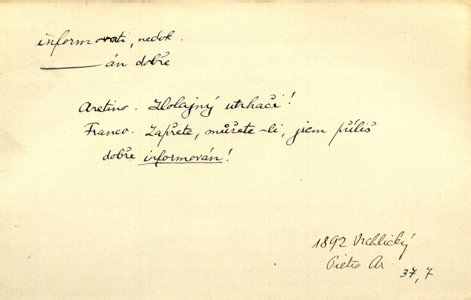 informovati, nedok.
——— án dobře
Aretino. Zlolajný utrhači!
Franco. Zapřete, můžete-li, jsem příliš
dobře informován!
1892 Vrchlický
Pietro Ar. 37, 7